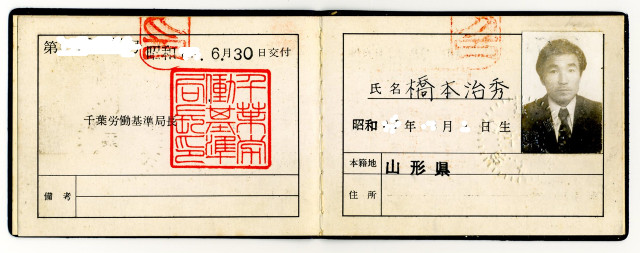 第
昭和 . 6月30日交付
千葉労働基準局長
千葉労
働基準
局長印
備考
氏名 橋本治秀
昭和 年 月 日生
本籍地 山形県
住所